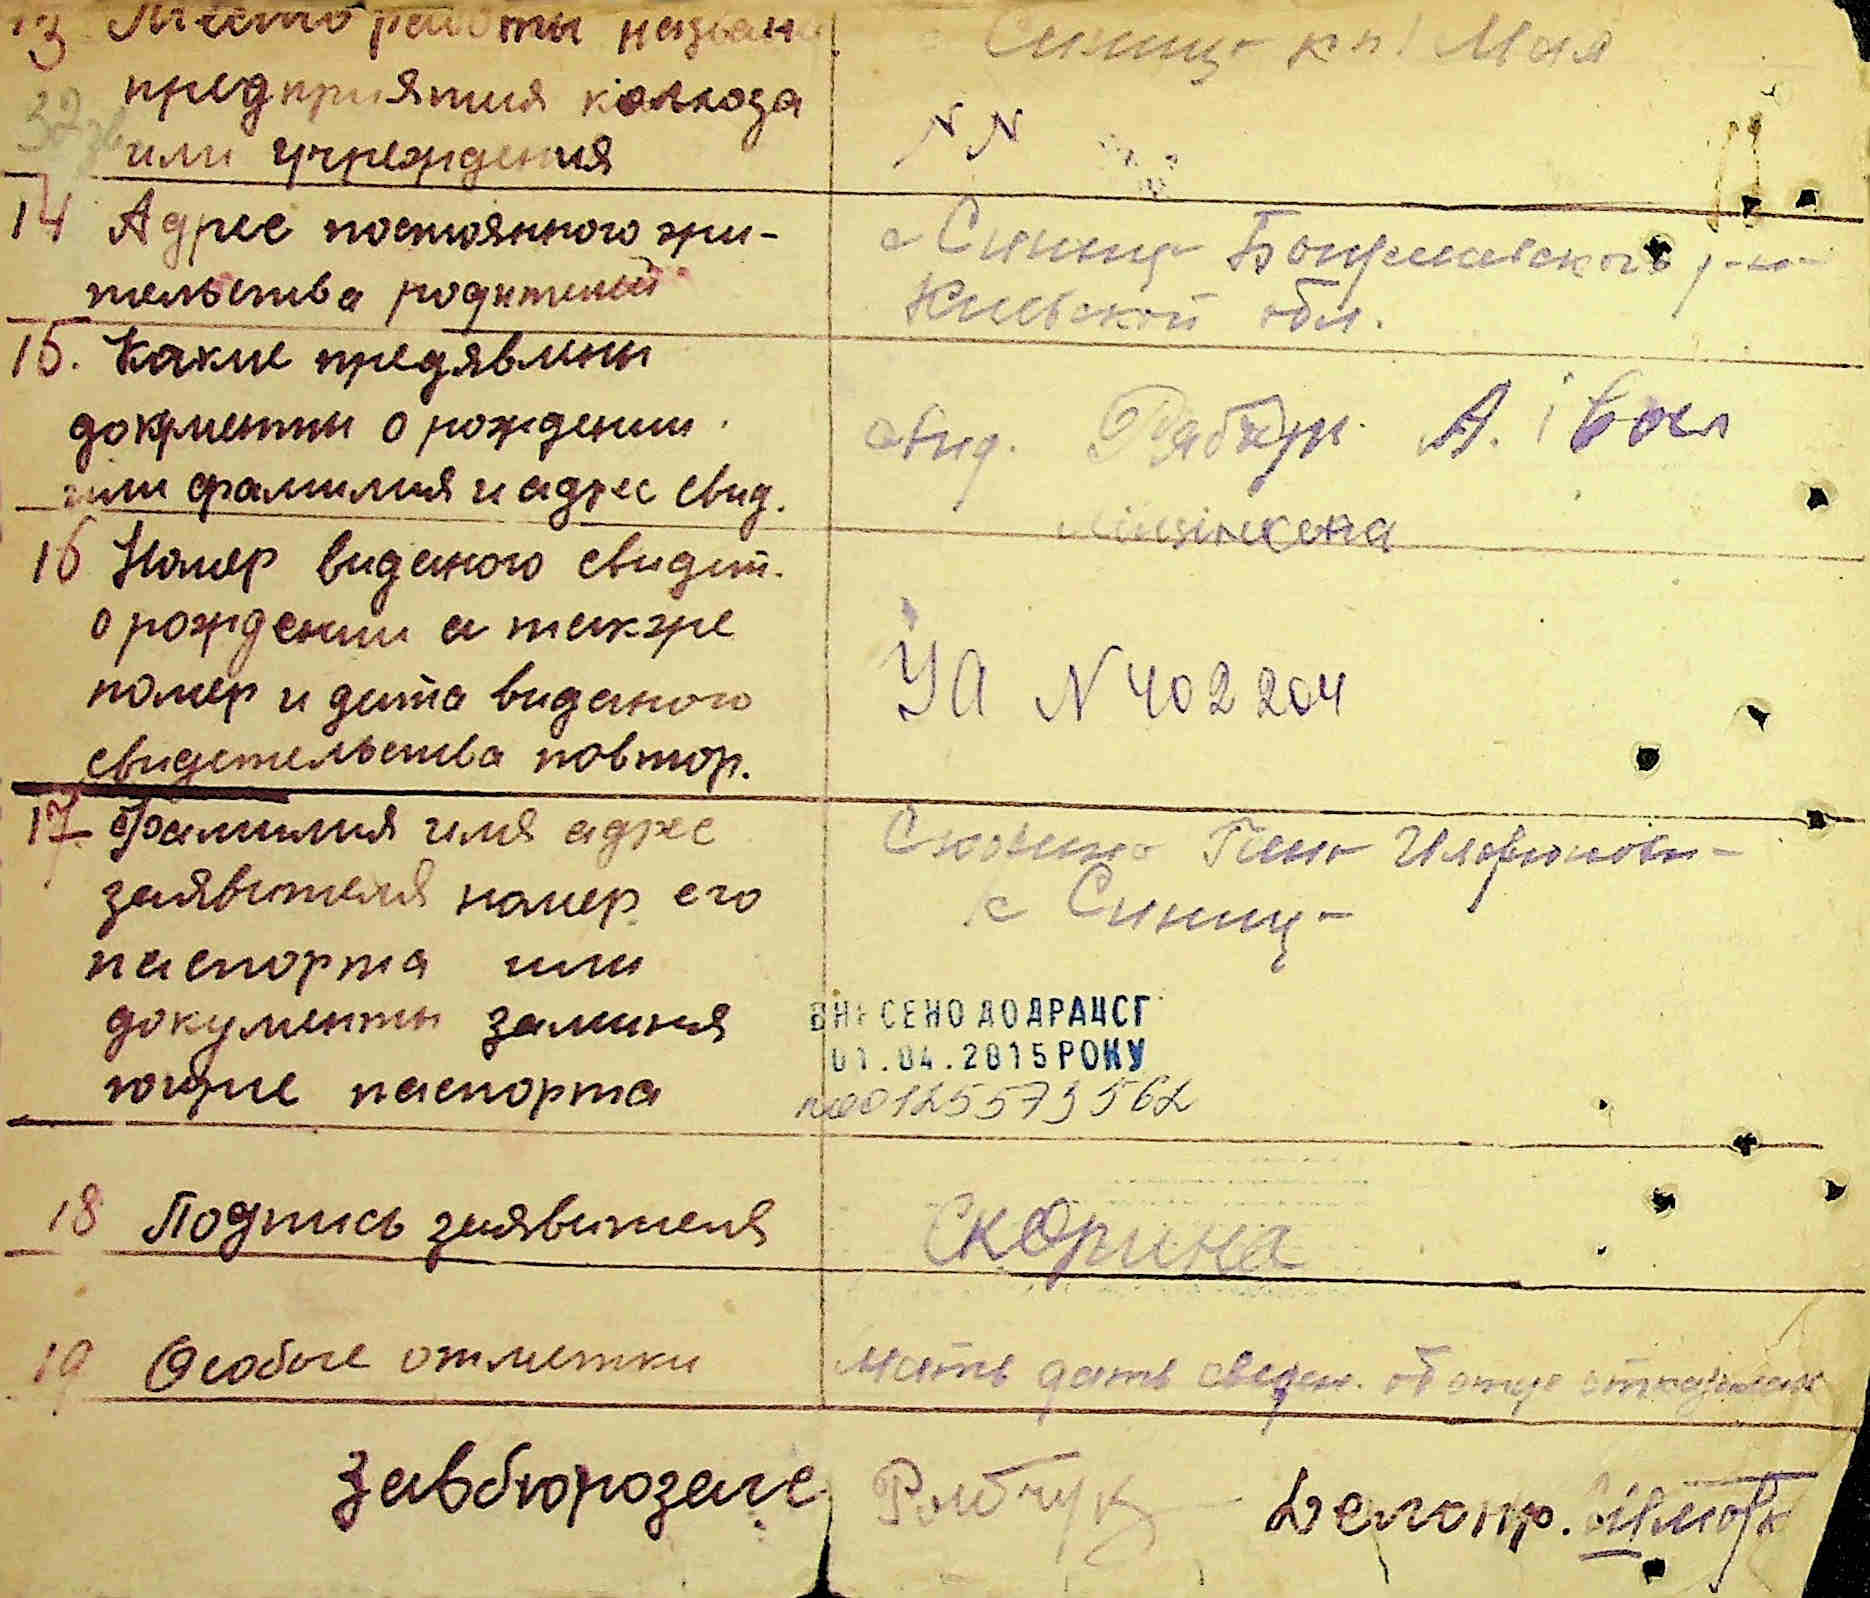 13 Место работы назван
предприятия колхоза
или учреждения
Синиця к п 1 Мая
N N
14 Адрес постоянного жи-
тельства родителей
с Синиця Богуславского р-на
Киевской обл.
15. Какие предявлены
документы о рождении
или фамилия и адрес свид.
свид. А.
16 Номер виданого свидет.
о рождении а также
номер и дата виданого
свидетельства повтор.
УА N 402204
17 Фамилия имя адрес
заявителя номер его
паспорта или
документы заминя
ющие паспорта
Скорина
с Синиця
ВНЕСЕНО ДО ДРАЦСГ
01.04.2015 РОКУ
00125573562
18 Подпись заявителя
Скорина
19 Особые отметки
Мать дать сведен. об отце отказалась
Завбюрозагс Рябчук Делопр.